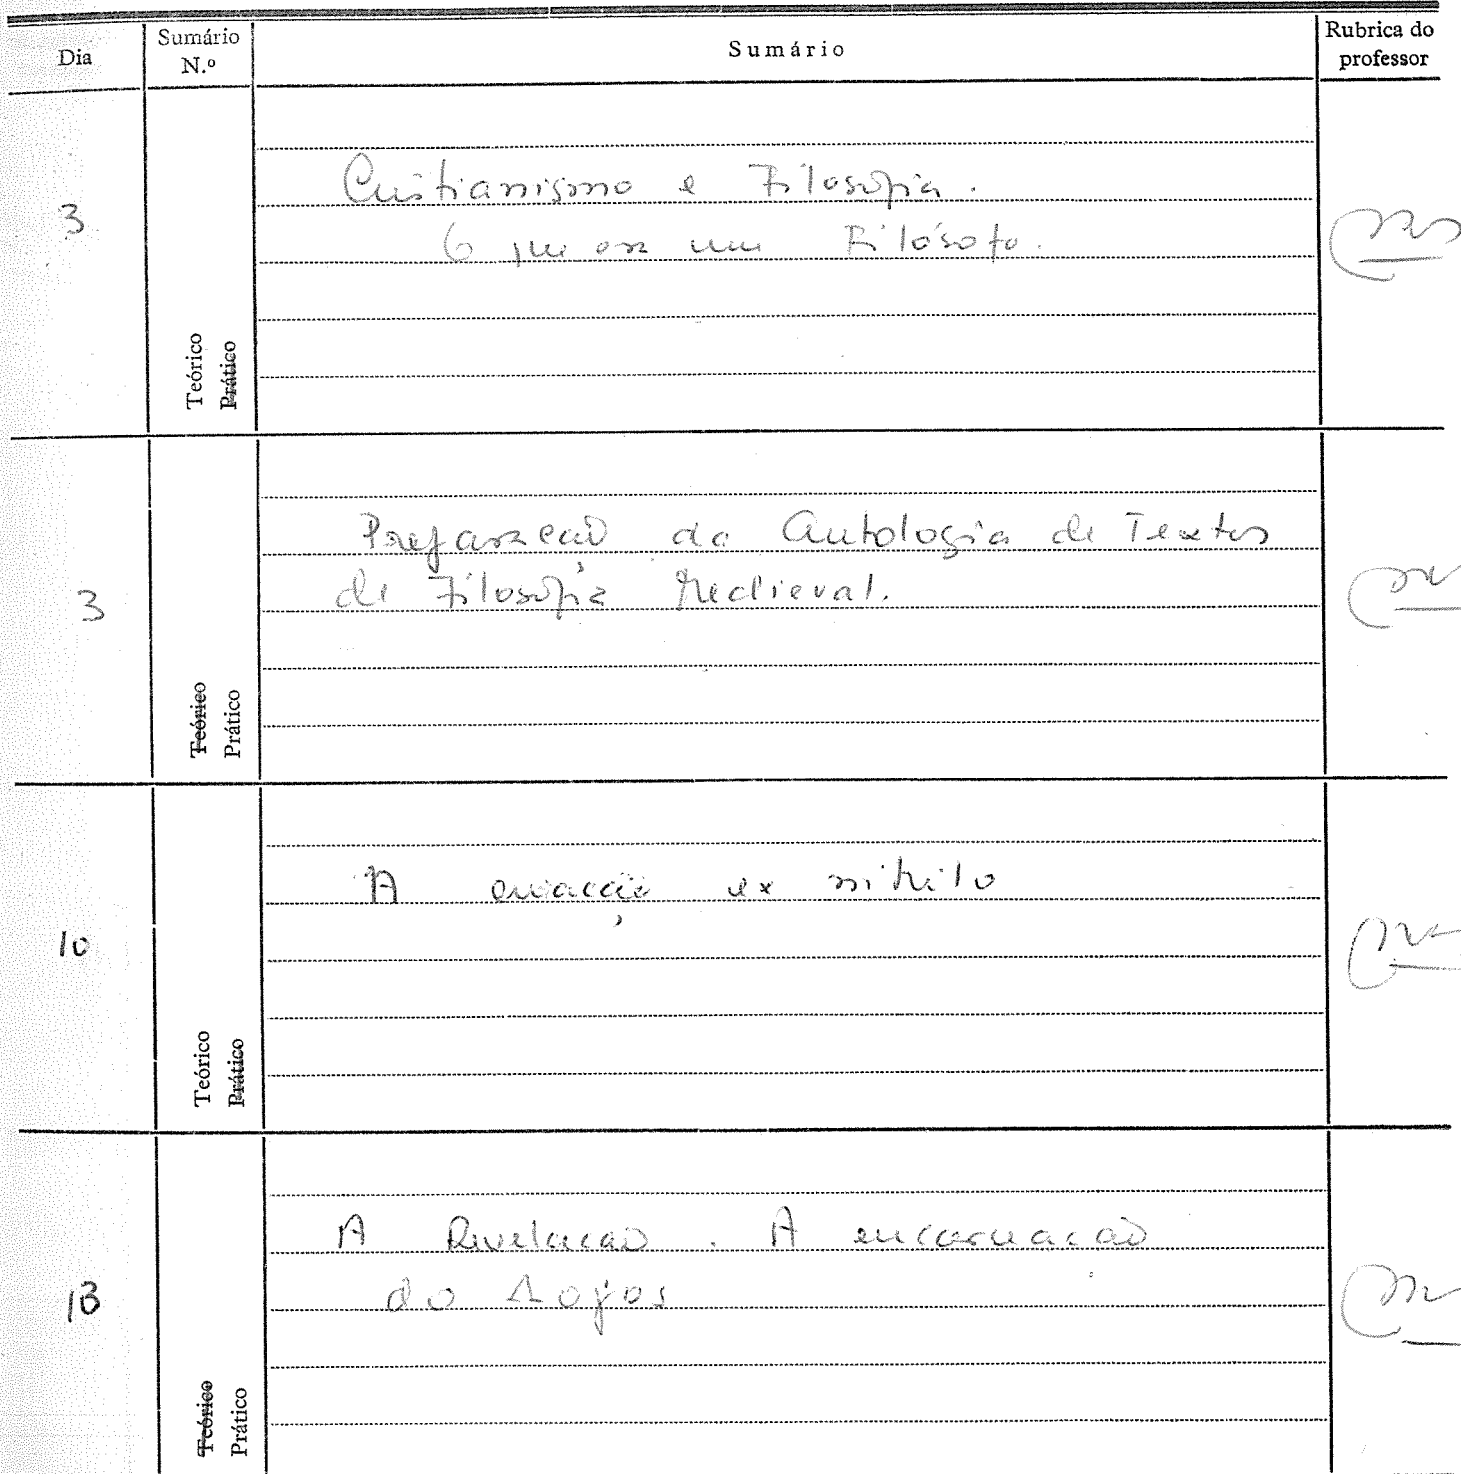 Dia
Sumário N.º
Sumário
Rubrica do professor
3
Teórico
Prático
Cristianismo e Filosofia.
O que era um Filósofo.
3
Teórico
Prático
Preparação da Antologia de Textos
de Filosofia Medieval.
10
Teórico
Prático
A criação ex nihilo
13
Teórico
Prático
A Revelação. A encarnação
do Λογος